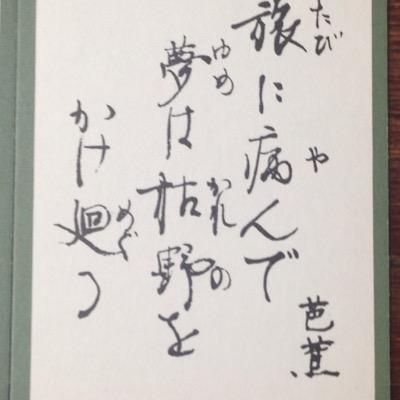 旅に病んで
たび
や
夢は枯野を
ゆめ
かれの
かけ廻る
めぐ
芭蕉